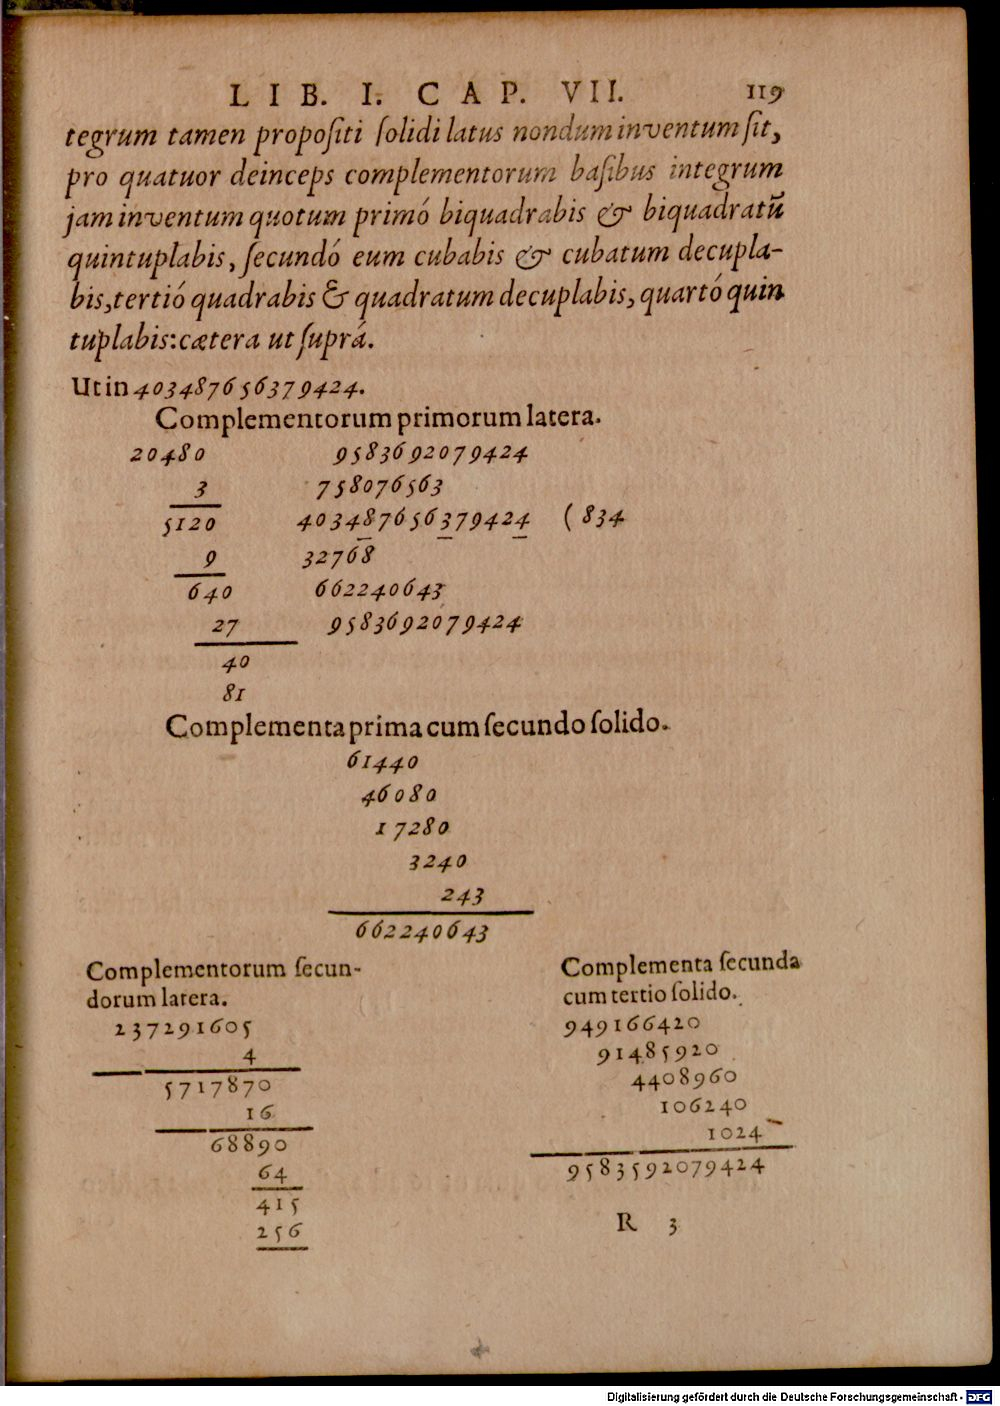 LIB. I. CAP. VII. 119
tegrum tamen propoſiti ſolidi latus nondum inventum ſit,
pro quatuor deinceps complementorum baſibus integrum
jam inventum quotum primó biquadrabis & biquadratū
quintuplabis, ſecundó eum cubabis & cubatum decupla-
bis, tertió quadrabis & quadratum decuplabis, quartó quin
tuplabis: cætera ut ſuprá.
Ut in 403487656379424.
Complementorum primorum latera.
20480 9583692079424
3 758076563
5120 403487656379424 ( 834
9 32768
640 662240643
27 9583692079424
40
81
Complementa prima cum ſecundo ſolido.
61440
46080
17280
3240
243
662240643
Complementorum ſecun-
dorum latera.
237291605
4
5717870
16
68890
64
415
256
Complementa ſecunda
cum tertio ſolido.
949166420
91485920
4408960
106240
1024
9583592079424
R 3
Digitalisierung gefördert durch die Deutsche Forschungsgemeinschaft - DFG